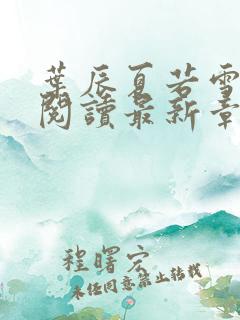 葉辰夏若雪
閱讀最新章
程曙宏
未經同意禁止轉載